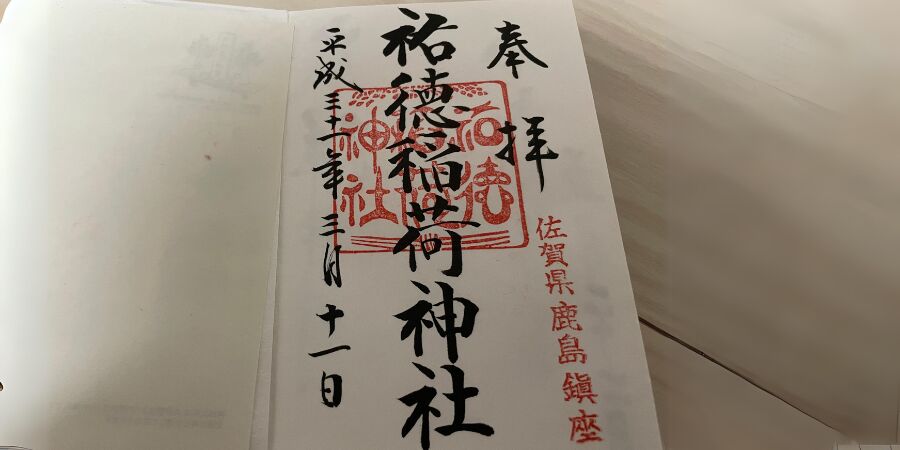 奉拝
佐賀県鹿島鎮座
祐徳稲荷神社
祐徳稲荷神社
平成三十一年三月十一日